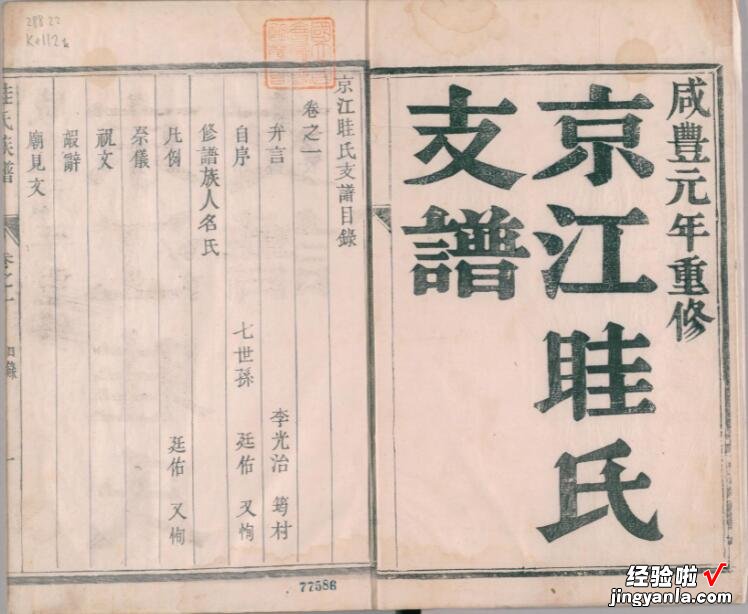 咸豐元年重修
京江眭氏
支譜
京江眭氏支譜目錄
卷之一
弁言 李光治 筠村
自序 七世孫 廷佑 又恂
修譜族人名氏
凡例 廷佑 又恂
祭儀
祝文
嘏辭
廟見文
眭氏族譜 卷之一 目錄 一
288.22
K8112a
77586
经验啦√
jingyanla.com